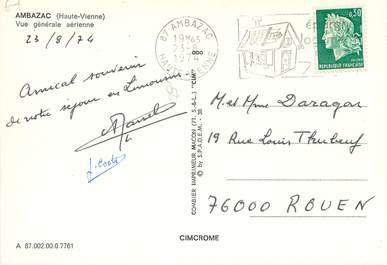 AMBAZAC (Haute-Vienne)
Vue générale aérienne
23/8/74
Amical souvenir
de notre séjour en Limousin
87 AMBAZAC
19H45
1974
HAUTE-VIENNE
0,30
REPUBLIQUE FRANÇAISE
M. et Mme Daragon
19 Rue Louis Thubeuf
76000 ROUEN
COMBIER IMPRIMEUR MACON (71. S.-&-L.) "CIM"
© by S.P.A.D.E.M. - 38
CIMCROME
A 87.002.00.0.7761